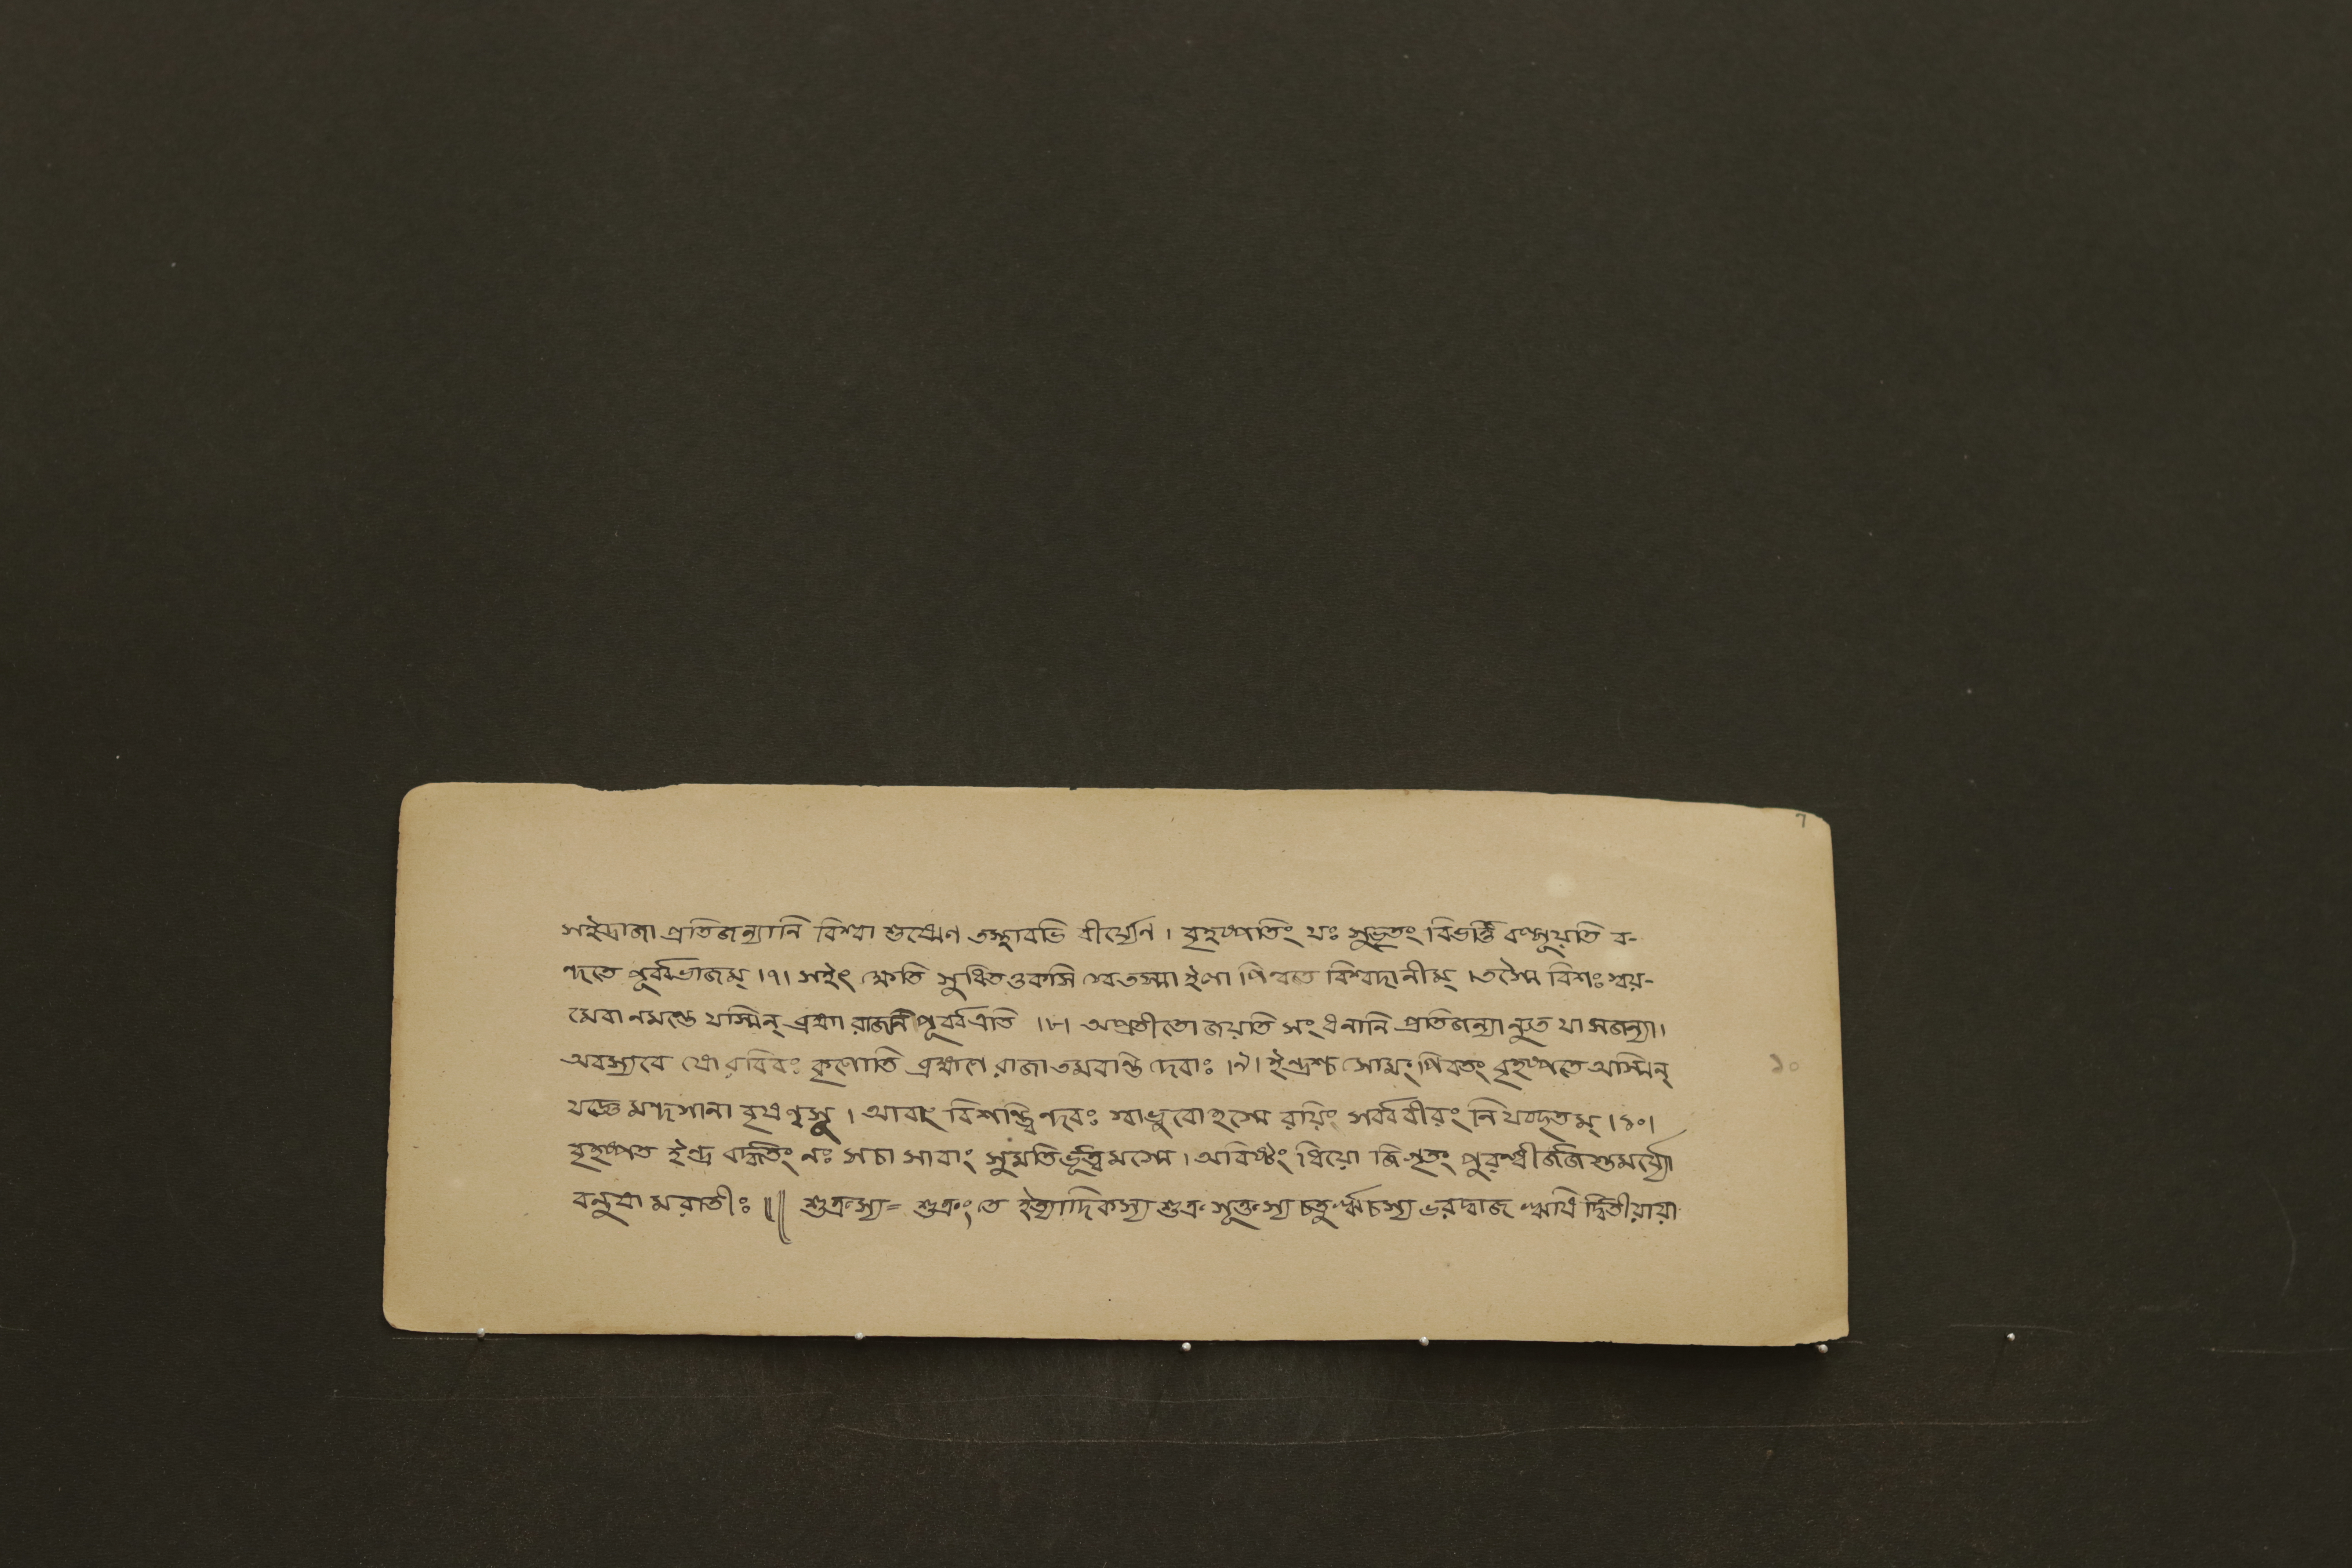 7
সইদ্রাজা প্রতিজন্যানি বিশ্বা শুষ্মেণ তস্থাবভি বীর্য্যেণ। বৃহস্পতিং যঃ সুভৃতং বিভর্ত্তি বল্গূয়তি ব-
ন্দতে পূর্ব্বভাজম্।৭। সইৎ ক্ষেতি সুধিত ওকসি স্বে তস্মা ইলা পিন্বতে বিশ্বদানীম্। তস্মৈ বিশঃ স্বয়-
মেবা নমন্তে যস্মিন্ ব্রহ্মা রাজনি পূর্ব্ব এতি।৮। অপ্রতীতো জয়তি সংধনানি প্রতিজন্যান্যুত যা সজন্যা।
অবস্যবে যো বরিবঃ কৃণোতি ব্রহ্মণে রাজা তমবন্তি দেবাঃ।৯। ইন্দ্রশ্চ সোমং পিবতং বৃহস্পতে অস্মিন্
১০
যজ্ঞে মন্দসানা বৃষণ্বসূ। আবাং বিশন্ত্বিন্দবঃ স্বাভুবো হস্মে রয়িং সর্ব্ববীরং নি যচ্ছতম্।১০।
বৃহস্পত ইন্দ্র বর্দ্ধতং নঃ সচা সাবাং সুমতির্ভূত্বমস্মে। অবিষ্টং ধিয়ো জিগৃতং পুরন্ধীর্জজস্তমর্য্যো
বনুষা মরাতীঃ॥ শুক্রস্য= শুক্রং তে ইত্যাদিকস্য শুক্র সূক্তস্য চতুর্ঋচস্য ভরদ্বাজ ঋষি দ্বিতীয়ায়া